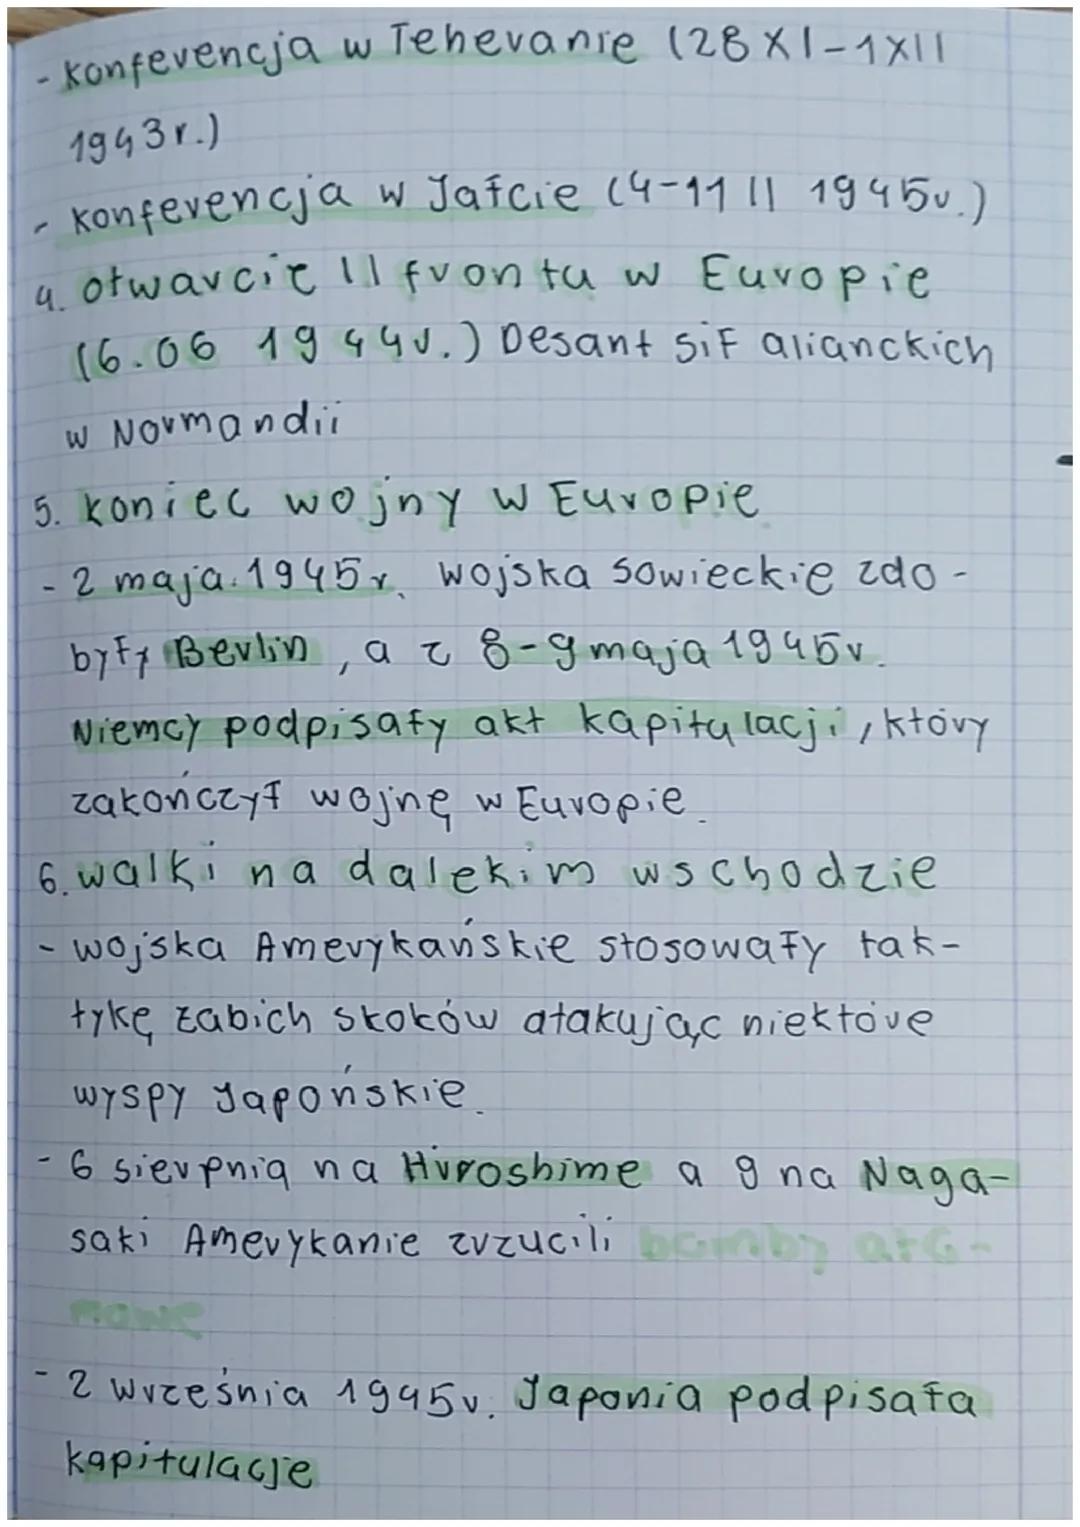 - Konferencja w Teheranie (28 XI-1XII
1943r.)
- Konferencja w Jałcie (4-11 II 1945r.)
4. Otwarcie II frontu w Europie
(6.06 1944r.) Desant sił alianckich
w Normandii
5. Koniec wojny w Europie
- 2 maja.1945r. Wojska Sowieckie zdo-
były Berlin, a z 8-9 maja 1945r.
Niemcy podpisały akt kapitulacji, który
zakończył wojnę w Europie.
6. walki na dalekim wschodzie
- wojska Amerykańskie stosowały tak-
tykę żabich skoków atakując niektóre
wyspy Japońskie.
- 6 sierpnia na Hiroshime a 9 na Naga-
saki Amerykanie zrzucili bomby ato-
mowe
- 2 września 1945r. Japonia podpisała
kapitulacje